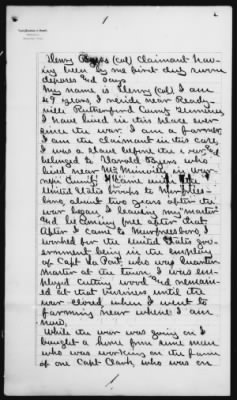 Henry (col) Claimant hav-
ing been by me first duly sworn
deposes and says
My name is Henry (col) I am
49 years, I reside near Ready-
ville Rutherford County Tennessee
I have lived in this place ever
since the war. I am a farmer
I am the claimant in this case,
I was a slave before the war and
belonged to Harold Byers who
lived near McMinnville in War-
ren County, I came with the
United States troops to Murfrees-
boro, about two years after the
war began, leaving my master
and becoming free after that
After I came to Murfreesboro, I
worked for the United States gov-
ernment being in the employ
of Capt La Pont who was Quarter
Master at the town. I was em-
ployed cutting wood and remain-
ed at that business until the
war closed when I went to
farming near where I am
now,
While the war was going on I
bought a horse from some man
who was working on the farm
of one Capt Clark, who was on